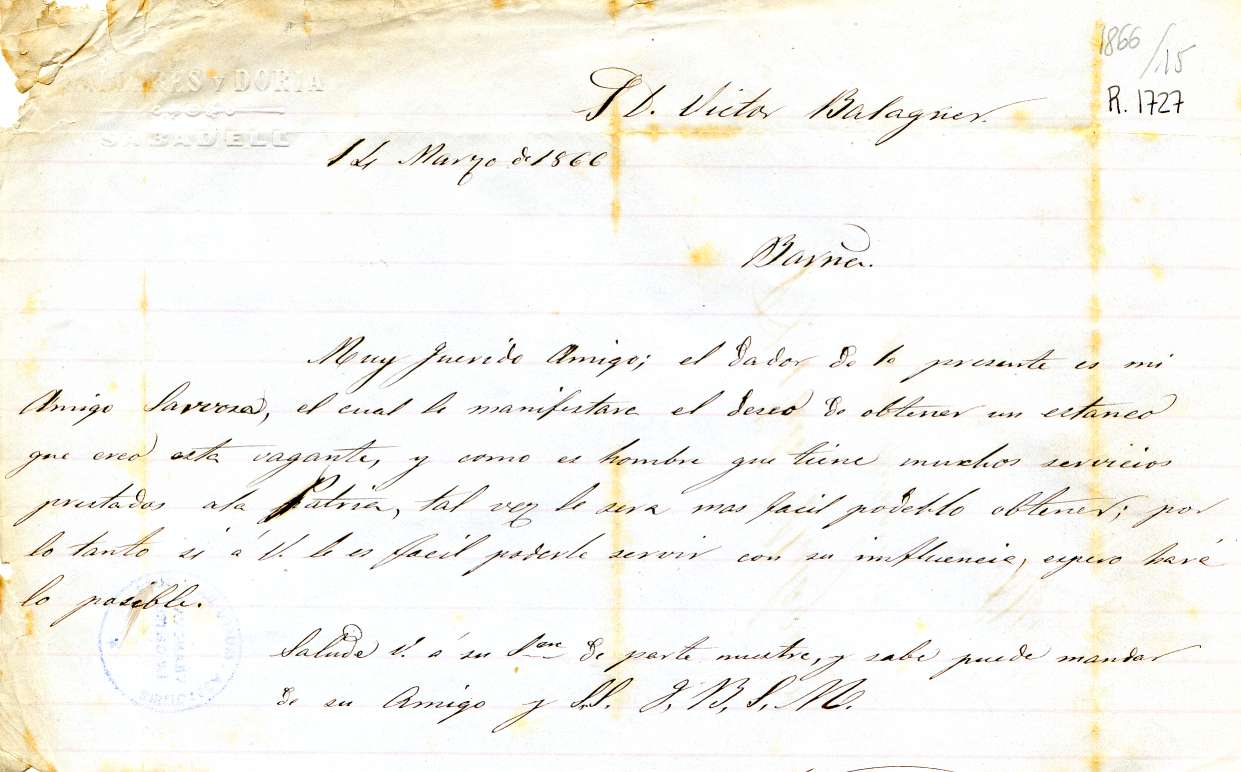 1866/15
R. 1727
Y DORIA
SABADELL
S D. Victor Balaguer.
14 Marzo de 1866
Barna.
Muy querido Amigo; el dador de la presente es mi
Amigo Sarrosa, el cual le manifestara el deseo de obtener un estanco
que creo esta vagante, y como es hombre que tiene muchos servicios
prestados a la Patria, tal vez le sera mas facil podeblo obtener; por
lo tanto si á V. le es facil poderle servir con su imfluencia, espero hará
lo posible.
Salude V. á su Sra de parte nuestra, y sabe puede mandar
de su Amigo y S.S. Q. B. S. M.